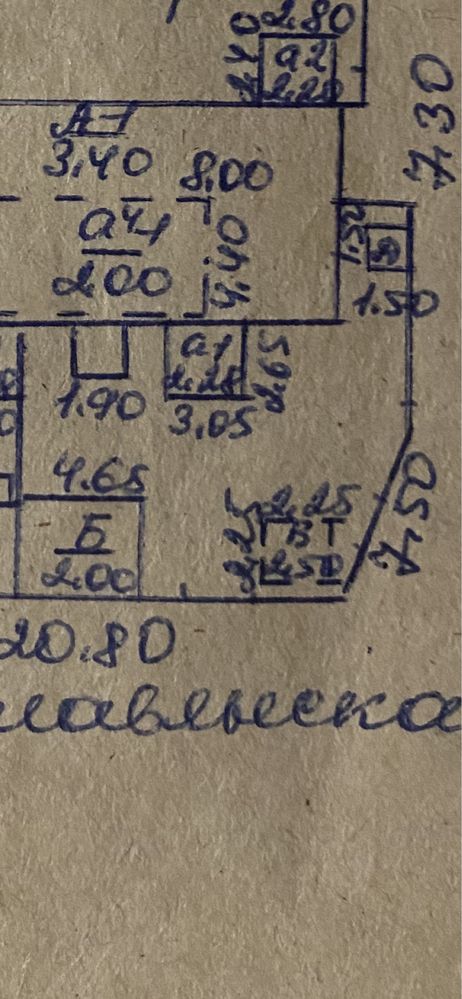 2.80
3.40
а2
2.20
7.30
А-1
3.40
8.00
а4-1
2.00
4.40
1.50
1.50
а1
2.25
2.65
1.90
3.05
4.65
Б
2.00
2.25
Б1
2.50
7.50
20.80